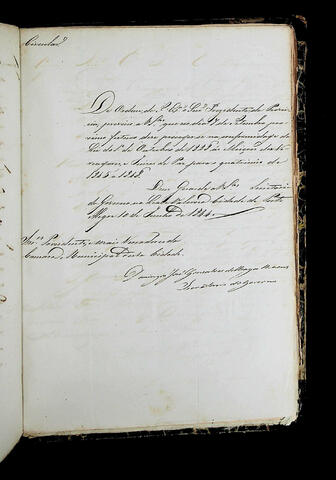 Circular
De Ordem do Ex.º Snr. Presidente da Provin
cia, previno a V.Sªs que no dia 7 de 7embro pro
ximo futuro deve proceder-se na conformidade da
Lei do 1º de Outubro de 1828 a
e Juizes de Paz para quatrienio de
1845 a 1848.
Deos Guarde a V.Sªs Secretaria
do Governo na Cidade de
10 de Junho de 1844.
Snrs. Presidente, e mais Vereadores da
Camara Municipal desta Cidade.
Domingos José Gonçalves de
Secretario do Governo